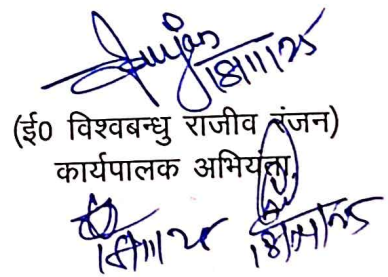 18/11/25
(ई० विश्वबन्धु राजीव रंजन)
कार्यपालक अभियंता
18/11/25 18/11/25